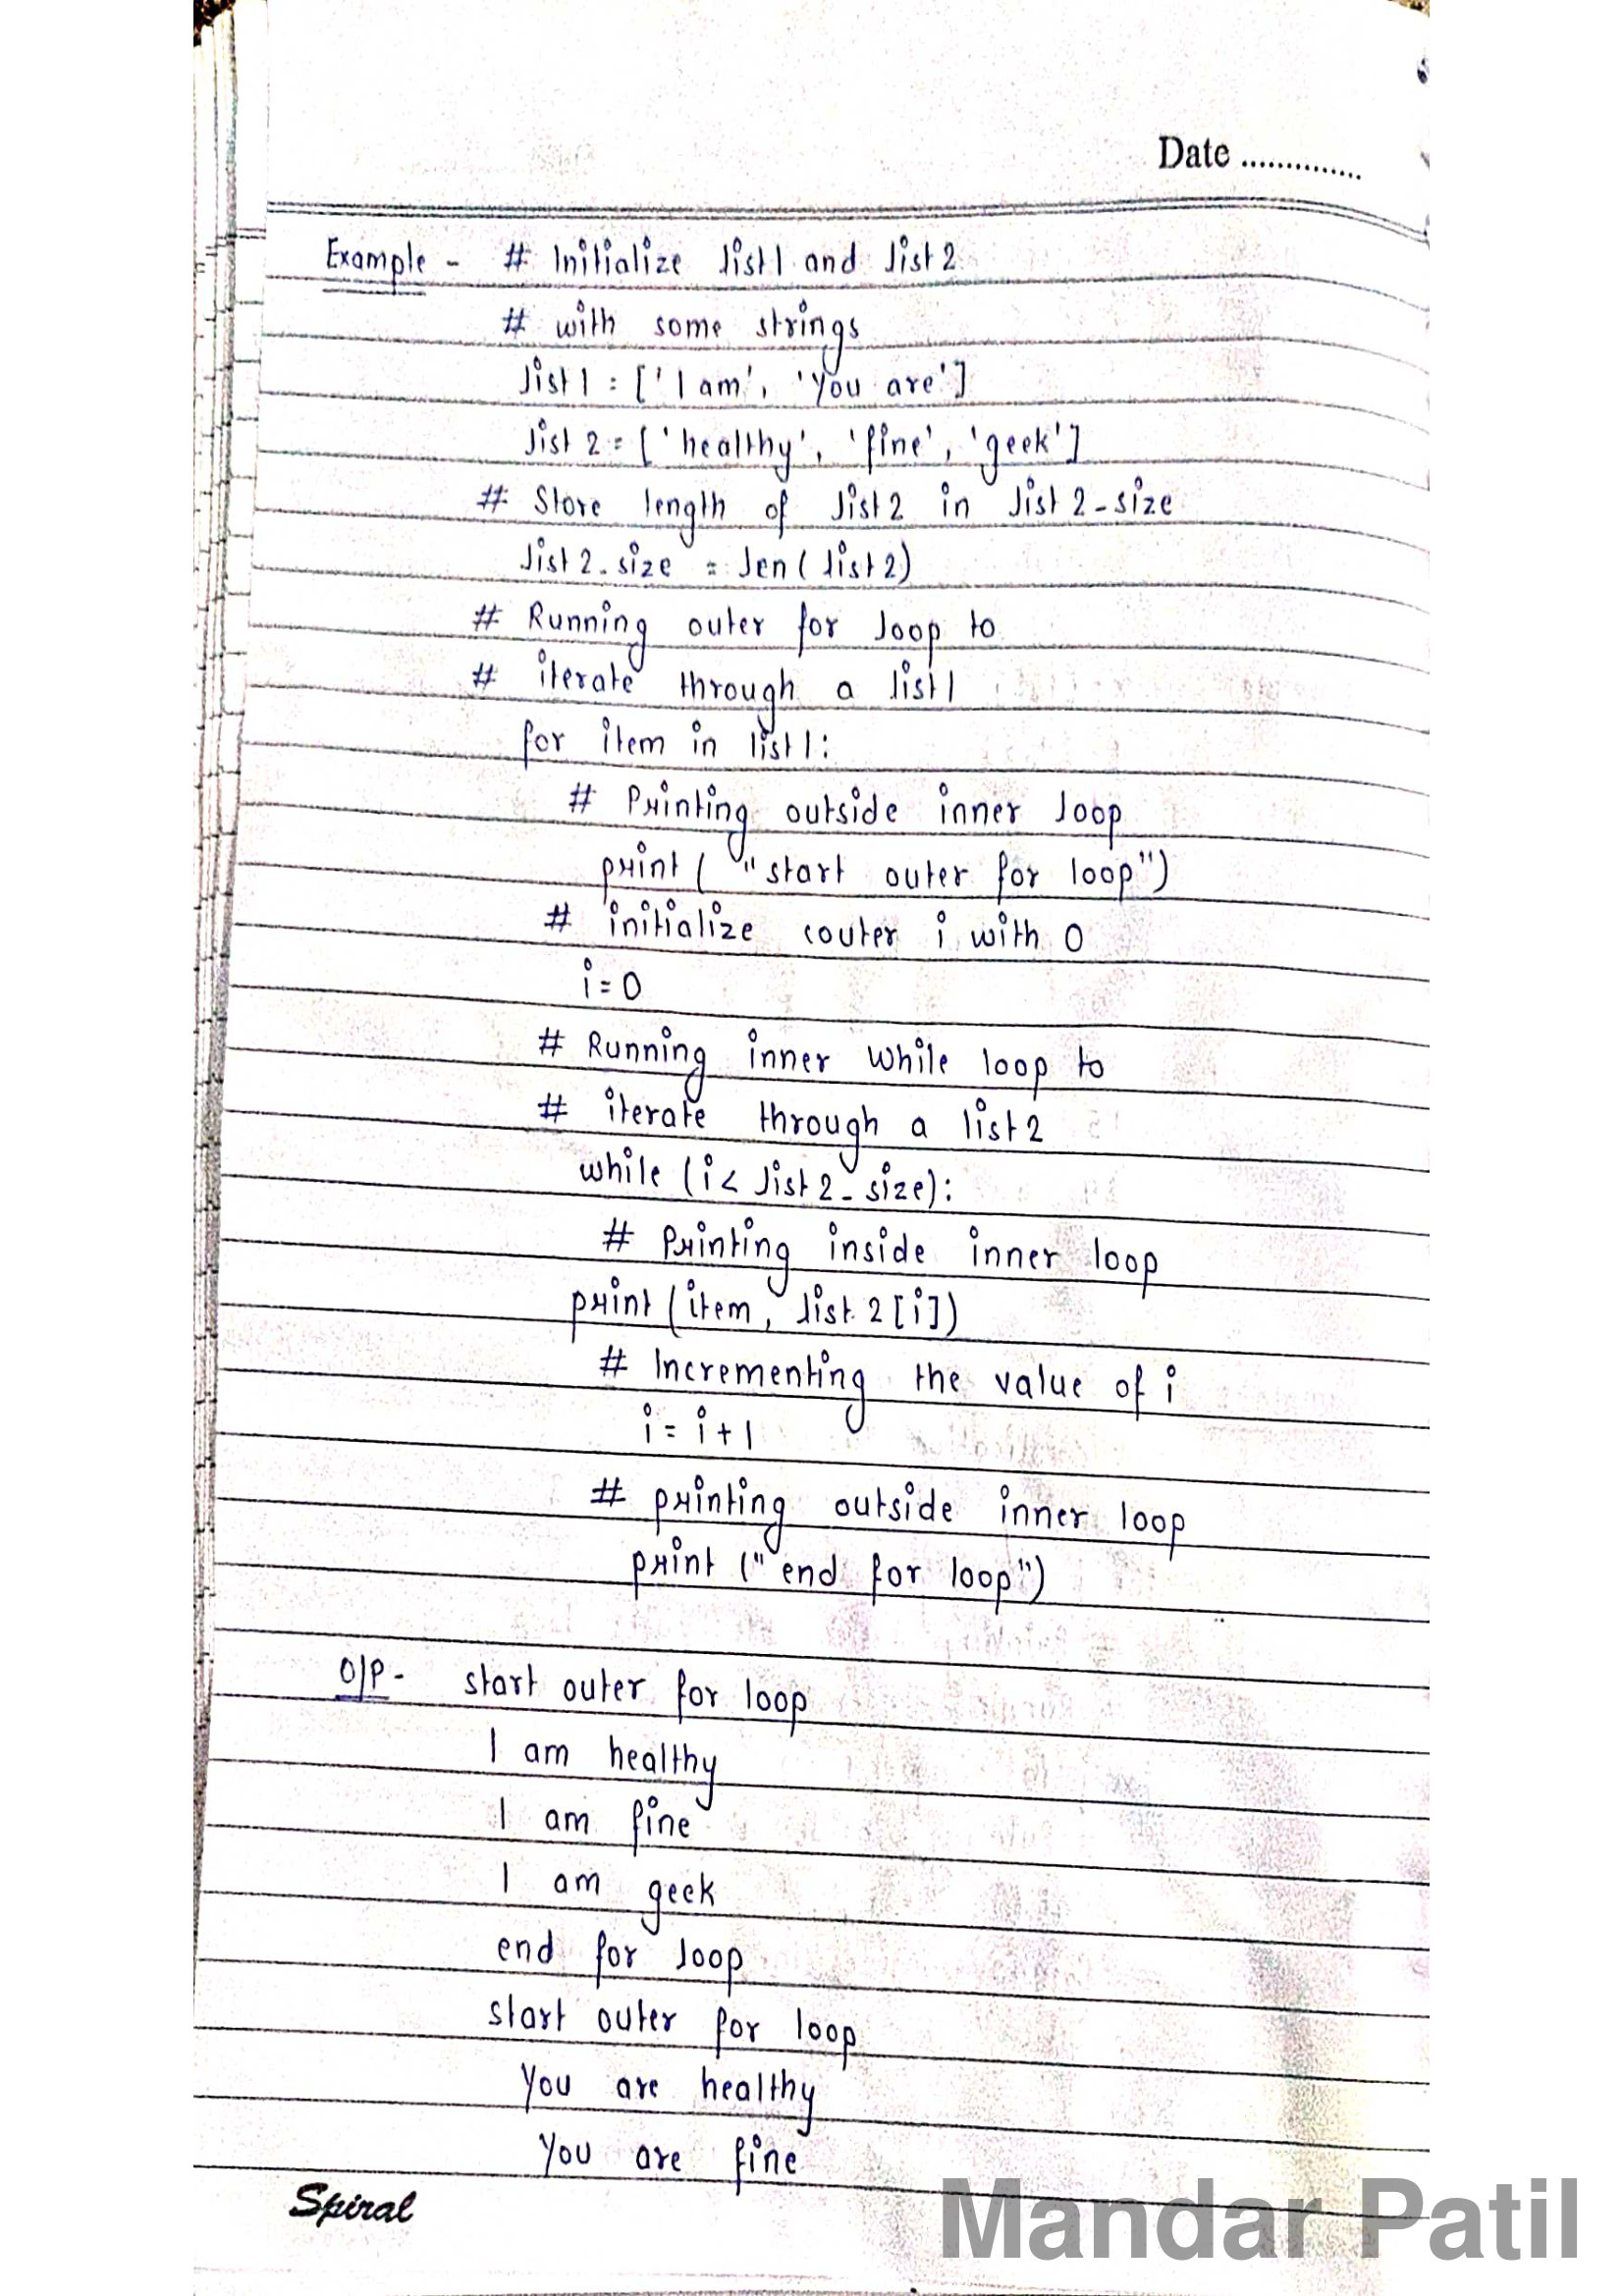 Date ..............
Example - # Initialize list1 and list2
# with some strings
list1 = ['I am', 'You are']
list2 = ['healthy', 'fine', 'geek']
# Store length of list2 in list2-size
list2-size = len(list2)
# Running outer for loop to
# iterate through a list1
for item in list1:
# Printing outside inner loop
print( "start outer for loop")
# initialize couter i with 0
i=0
# Running inner while loop to
# iterate through a list2
while (i< list2-size):
# Printing inside inner loop
print(item, list2[i])
# Incrementing the value of i
i = i+1
# printing outside inner loop
print ("end for loop")
O/P - start outer for loop
I am healthy
I am fine
I am geek
end for loop
start outer for loop
You are healthy
You are fine
Spiral
Mandar Patil